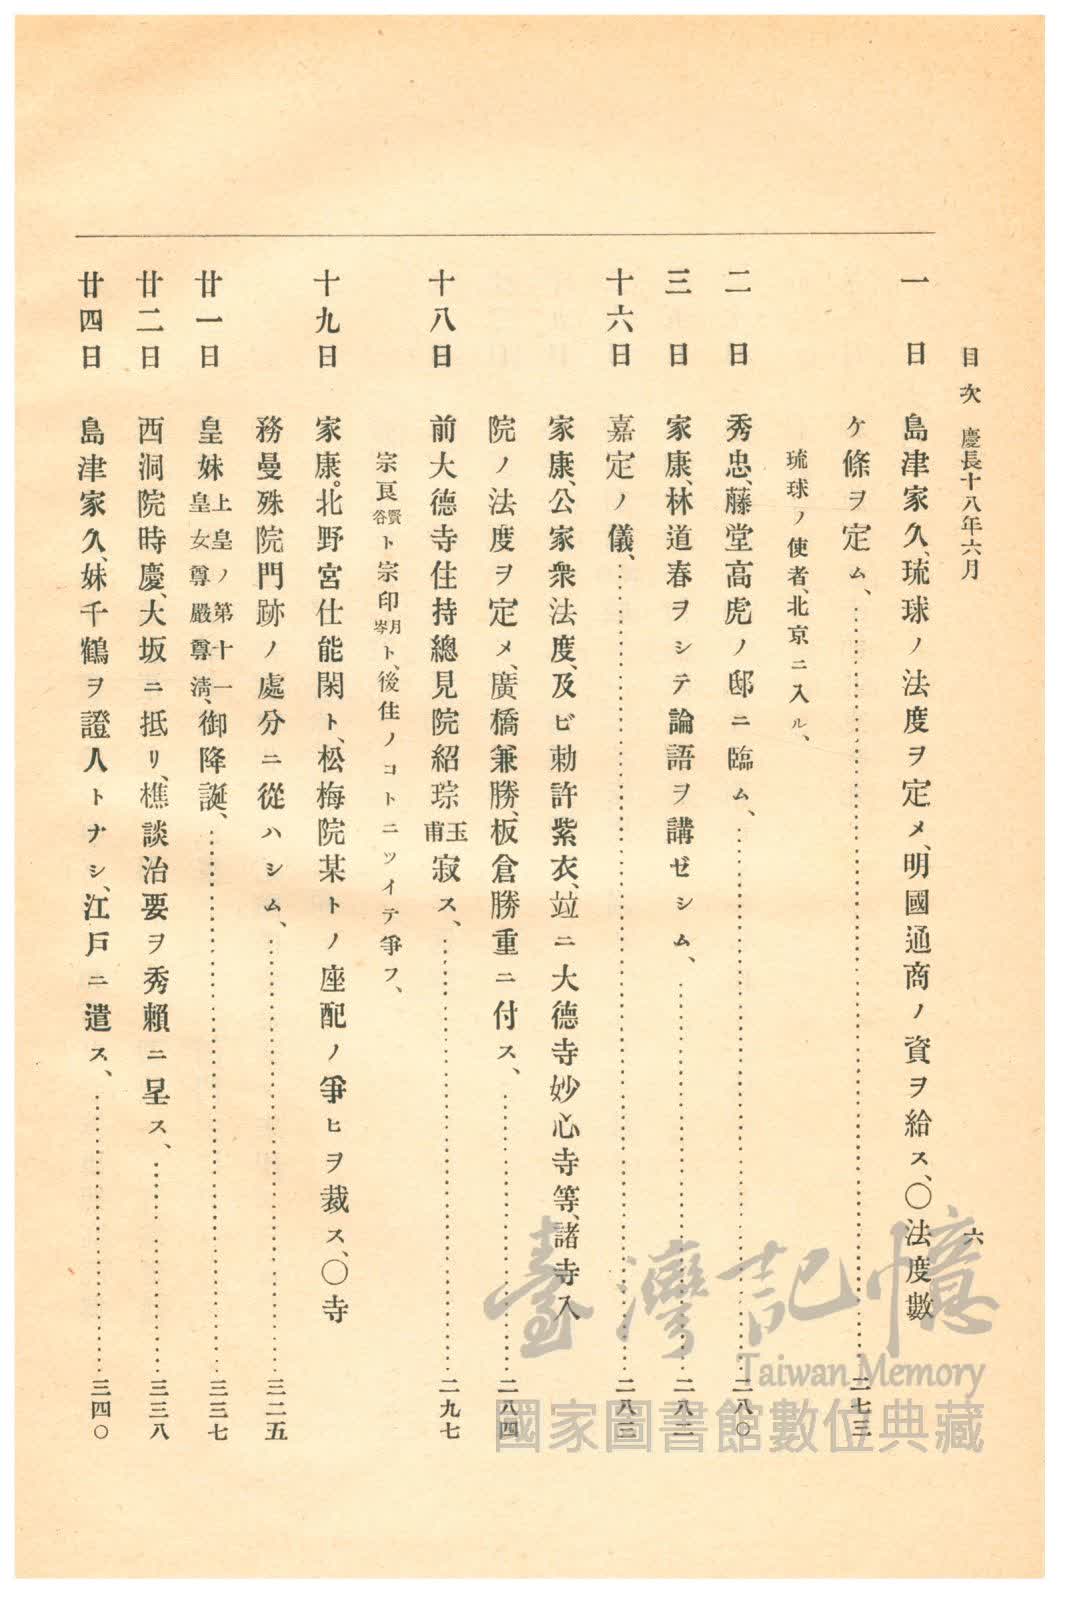 目次 慶長十八年六月 六
一日 島津家久、琉球ノ法度ヲ定メ、明國通商ノ資ヲ給ス、〇法度數
ケ條ヲ定ム、……………………二七三
琉球ノ使者、北京ニ入ル、
二日 秀忠、藤堂高虎ノ邸ニ臨ム、……………………二八〇
三日 家康、林道春ヲシテ論語ヲ講ゼシム、……………………二八二
十六日 嘉定ノ儀、……………………二八三
家康、公家衆法度、及ビ勅許紫衣、竝ニ大德寺妙心寺等、諸寺入
院ノ法度ヲ定メ、廣橋兼勝、板倉勝重ニ付ス、……………………二八四
十八日 前大德寺住持總見院紹琮玉甫寂ス、……………………二九七
宗良賢谷ト宗印月岑ト、後住ノコトニツイテ爭フ、
十九日 家康。北野宮仕能閑ト、松梅院某トノ座配ノ爭ヒヲ裁ス、〇寺
務曼殊院門跡ノ處分ニ從ハシム、……………………三二五
廿一日 皇妹上皇ノ第十一皇女尊嚴尊淸、御降誕、……………………三三七
廿二日 西洞院時慶、大坂ニ抵リ、樵談治要ヲ秀賴ニ呈ス、……………………三三八
廿四日 島津家久、妹千鶴ヲ證人トナシ、江戶ニ遣ス、……………………三四〇
臺灣記憶
Taiwan Memory
國家圖書館數位典藏